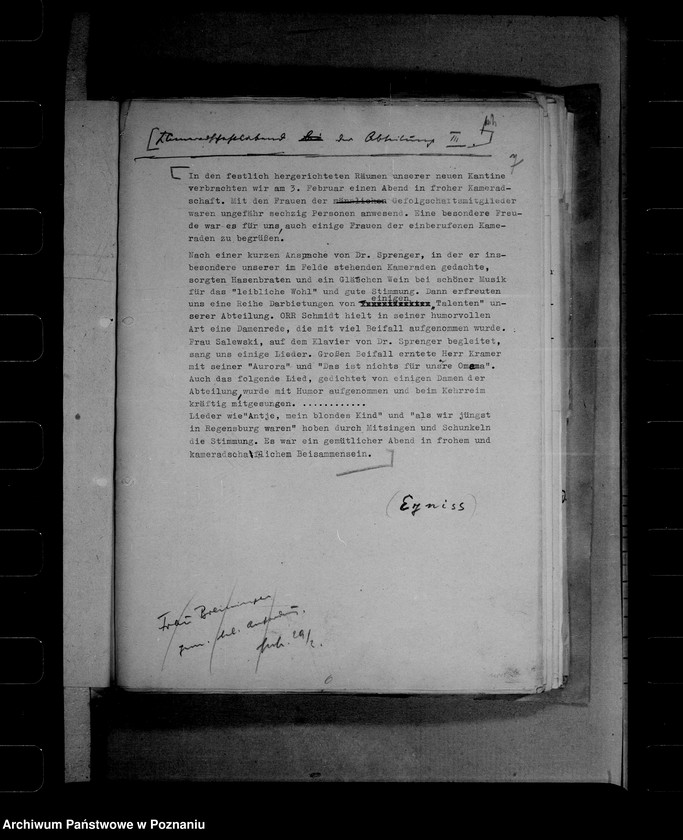 [Kameradschaftsabend der Abteilung III.]
7
In den festlich hergerichteten Räumen unserer neuen Kantine
verbrachten wir am 3. Februar einen Abend in froher Kamerad-
schaft. Mit den Frauen der männlichen Gefolgschaftsmitglieder
waren ungefähr sechzig Personen anwesend. Eine besondere Freu-
de war es für uns, auch einige Frauen der einberufenen Kame-
raden zu begrüßen.
Nach einer kurzen Ansprache von Dr. Sprenger, in der er ins-
besondere unserer im Felde stehenden Kameraden gedachte,
sorgten Hasenbraten und ein Gläschen Wein bei schöner Musik
für das "leibliche Wohl" und gute Stimmung. Dann erfreuten
uns eine Reihe Darbietungen von einigen "Talenten" un-
serer Abteilung. ORR Schmidt hielt in seiner humorvollen
Art eine Damenrede, die mit viel Beifall aufgenommen wurde.
Frau Salewski, auf dem Klavier von Dr. Sprenger begleitet,
sang uns einige Lieder. Großen Beifall erntete Herr Kramer
mit seiner "Aurora" und "Das ist nichts für unsre Omama".
Auch das folgende Lied, gedichtet von einigen Damen der
Abteilung, wurde mit Humor aufgenommen und beim Kehrreim
kräftig mitgesungen. ............
Lieder wie"Antje, mein blondes Kind" und "als wir jüngst
in Regensburg waren" hoben durch Mitsingen und Schunkeln
die Stimmung. Es war ein gemütlicher Abend in frohem und
kameradschaftlichem Beisammensein.
(Egniss)
Frau
Archiwum Państwowe w Poznaniu